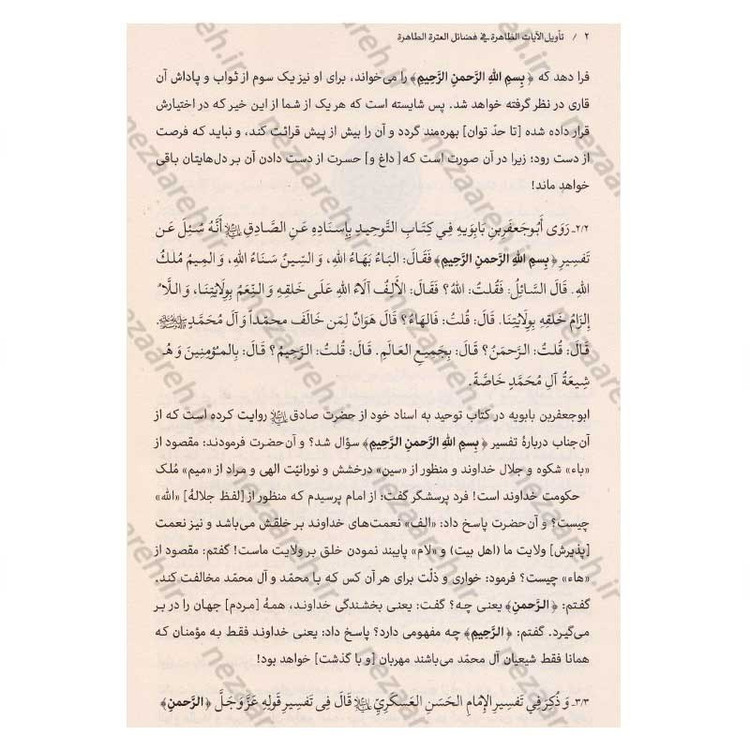 ۲ / تأویل الآیات الظاهرة في فضائل العترة الطاهرة
فرا دهد که ﴿بِسمِ اللهِ الرَّحمنِ الرَّحِیمِ﴾ را می‌خواند، برای او نیز یک سوم از ثواب و پاداش آن
قاری در نظر گرفته خواهد شد. پس شایسته است که هر یک از شما از این خیر که در اختیارش
قرار داده شده [تا حدّ توان] بهره‌مند گردد و آن را بیش از پیش قرائت کند، و نباید که فرصت
از دست رود: زیرا در آن صورت است که [داغ و] حسرت از دست دادن آن بر دل‌هایتان باقی
خواهد ماند!
۲/۲ـ رَوَی أَبُوجَعفَرِبنِ بَابَوَیهِ فِي کِتَابِ التَّوحِیدِ بِإِسنَادِهِ عَنِ الصَّادِقِ علیه‌السلام أَنَّهُ سُئِلَ عَن
تَفسِیرِ ﴿بِسمِ اللهِ الرَّحمنِ الرَّحِیمِ﴾ فَقَالَ: البَاءُ بَهَاءُ اللهِ، وَ السِّینُ سَنَاءُ اللهِ، وَ المِیمُ مُلكُ
اللهِ. قَالَ السَّائِلُ: فَقُلتُ: اللهُ؟ فَقَالَ: الأَلِفُ آلَاءُ اللهِ عَلَی خَلقِهِ وَ النِّعَمُ بِوِلَایَتِنَا، وَ اللَّامُ
إِلزَامُ خَلقِهِ بِوِلَایَتِنَا. قَالَ: قُلتُ: فَالهَاءُ؟ قَالَ هَوَانٌ لِمَن خَالَفَ محمّداً وَ آلَ مُحَمَّدٍ
قَالَ: قُلتُ: الرَّحمَنُ؟ قَالَ: بِجَمِیعِ العَالَمِ. قَالَ: قُلتُ: الرَّحِیمُ؟ قَالَ: بِالمُؤمِنِینَ وَ هُم
شِیعَةُ آلِ مُحَمَّدٍ خَاصَّةً.
ابوجعفربن بابویه در کتاب توحید به اسناد خود از حضرت صادق علیه‌السلام روایت کرده است که از
آن‌جناب دربارهٔ تفسیر ﴿بِسمِ اللهِ الرَّحمنِ الرَّحِیمِ﴾ سؤال شد؟ و آن‌حضرت فرمودند: مقصود از
«باء» شکوه و جلال خداوند و منظور از «سین» درخشش و نورانیّت الهی و مراد از «میم» مُلک
حکومت خداوند است! فرد پرسشگر گفت: از امام پرسیدم که منظور از [لفظ جلالهٔ] «الله»
چیست؟ و آن‌حضرت پاسخ داد: «الف» نعمت‌های خداوند بر خلقش می‌باشد و نیز نعمت
[پذیرش] ولایت ما (اهل بیت) و «لام» پایبند نمودن خلق بر ولایت ماست! گفتم: مقصود از
«هاء» چیست؟ فرمود: خواری و ذلّت برای هر آن کس که با محمّد و آل محمّد مخالفت کند.
گفتم: ﴿الرَّحمنِ﴾ یعنی چه؟ گفت: یعنی بخشندگی خداوند، همهٔ [مردم] جهان را در بر
می‌گیرد. گفتم: ﴿الرَّحِیمِ﴾ چه مفهومی دارد؟ پاسخ داد: یعنی خداوند فقط به مؤمنان که
همانا فقط شیعیان آل محمّد می‌باشند مهربان [و با گذشت] خواهد بود!
۳/۳ـ وَ ذُکِرَ فِي تَفسِیرِ الإِمَامِ الحَسَنِ العَسکَرِيِّ علیه‌السلام قَالَ فِی تَفسِیرِ قَولِهِ عَزَّ وَ جَلَّ ﴿الرَّحمنِ﴾
nezaareh.ir